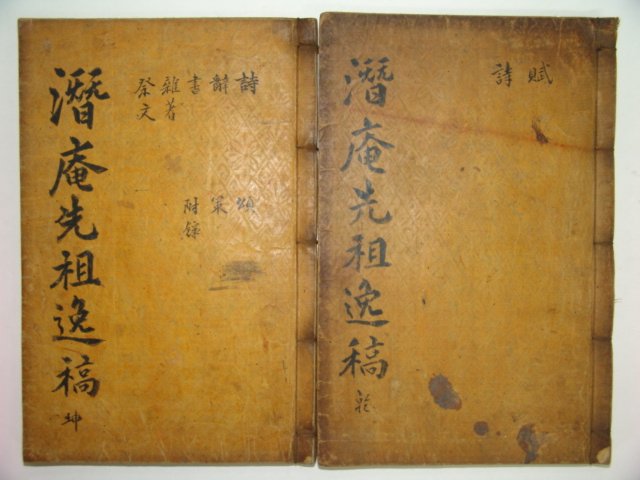 賦
詩
潛庵先祖逸稿
乾
詩 頌
辭 策
書 附錄
雜著
祭文
潛庵先祖逸稿
坤